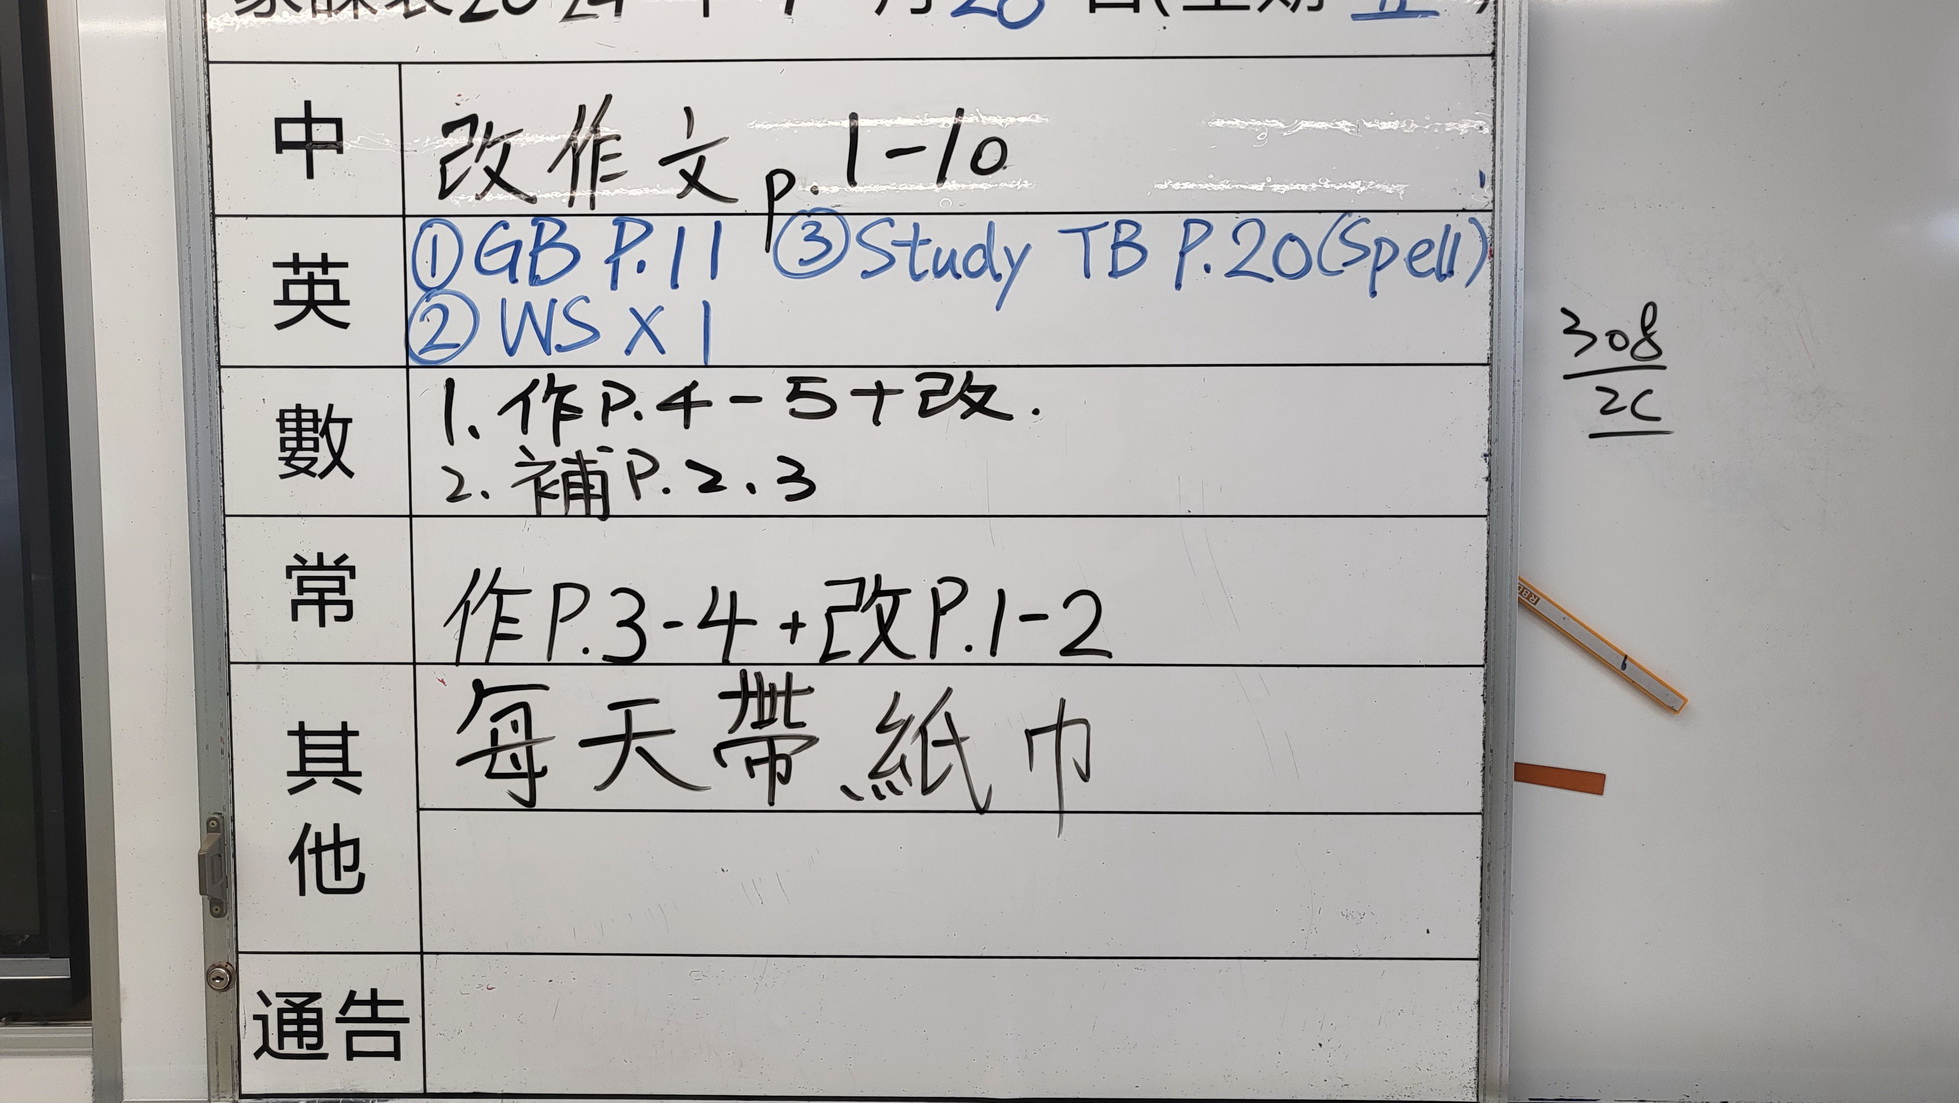 家課表2024年 月20日(星期五)
中
改作文p.1-10
英
①GB P.11 ③Study TB P.20(Spell)
②WS X 1
數
1.作P.4-5+改.
2.補P.2、3
常
作P.3-4+改P.1-2
其他
每天帶紙巾
通告
308
2C